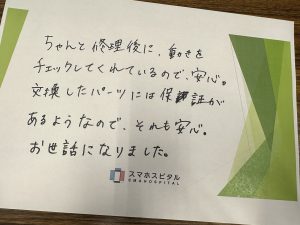 ちゃんと修理後に、動きを
チェックしてくれているので、安心。
交換したパーツには保証が
あるようなので、それも安心。
お世話になりました。
スマホスピタル
SMAHOSPITAL